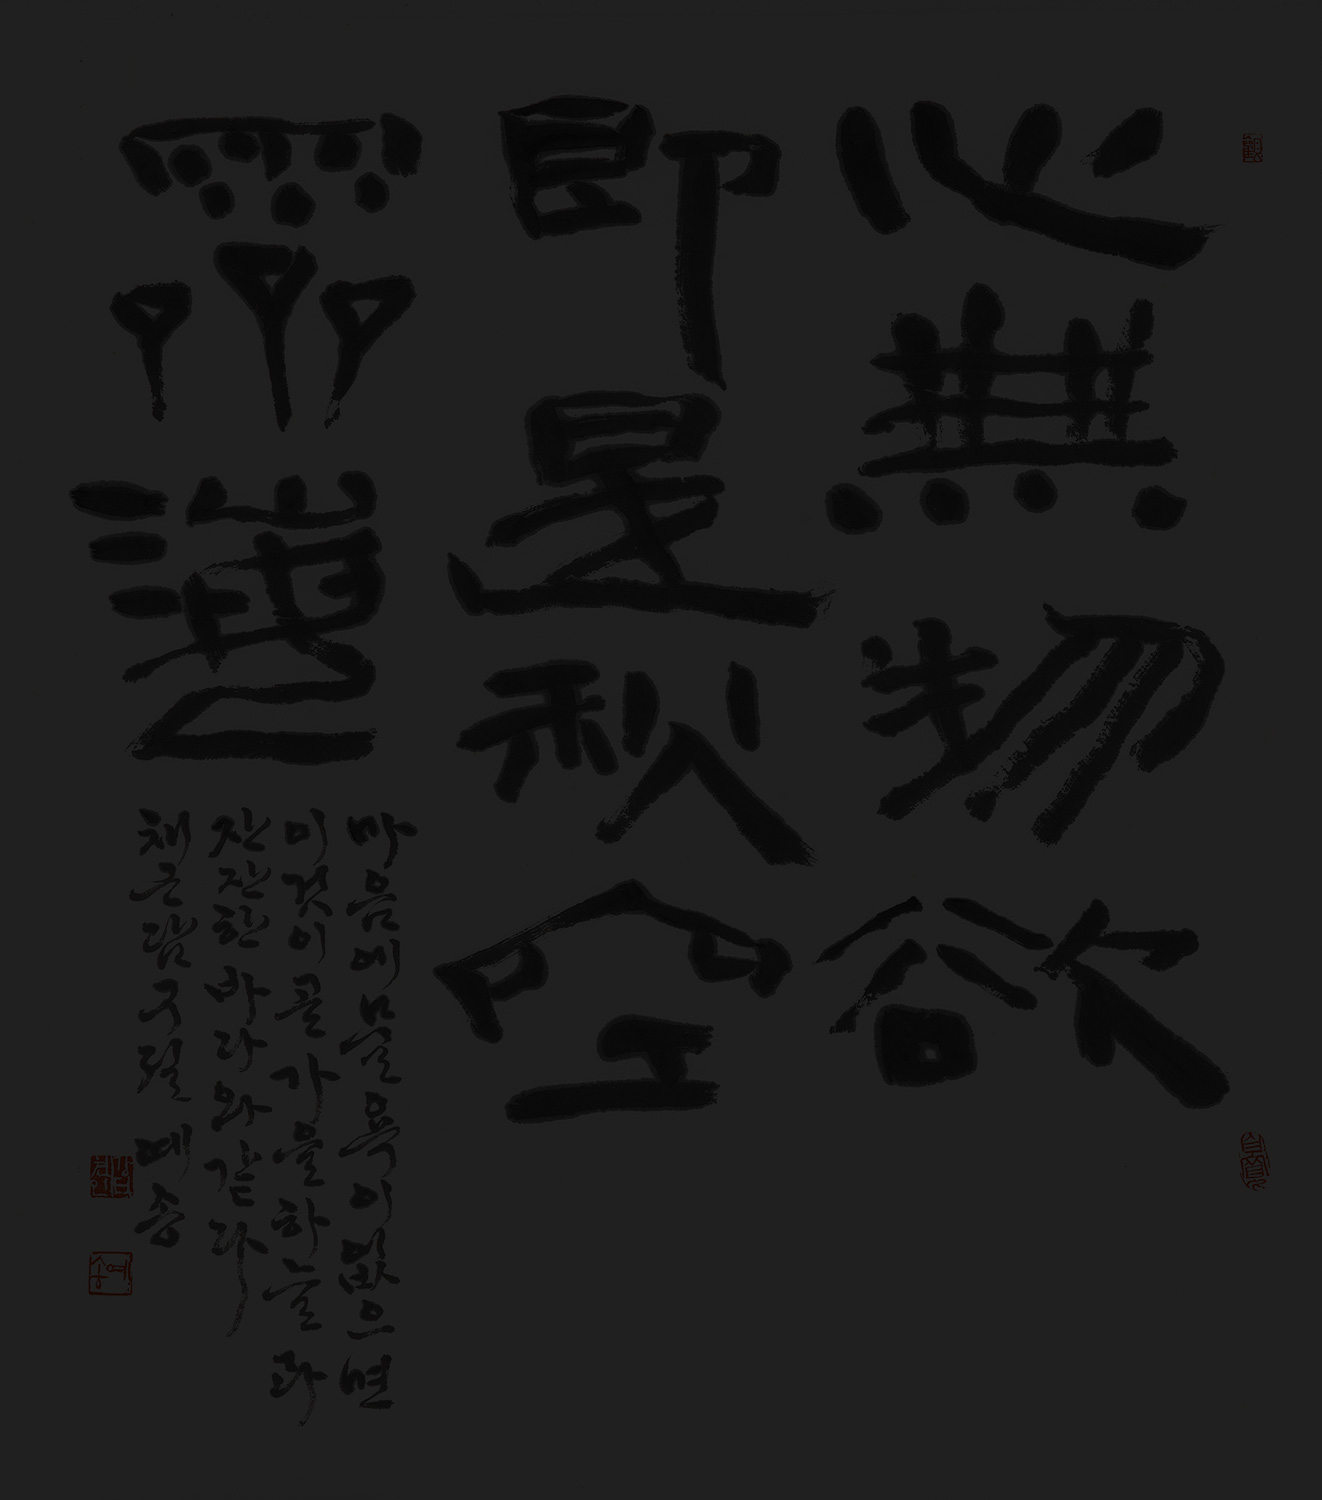 心無物欲
即是秋空
霽海
마음에 물욕이 없으면
이것이 곧 가을 하늘과
잔잔한 바다와 같다
채근담 구절 예송
예송